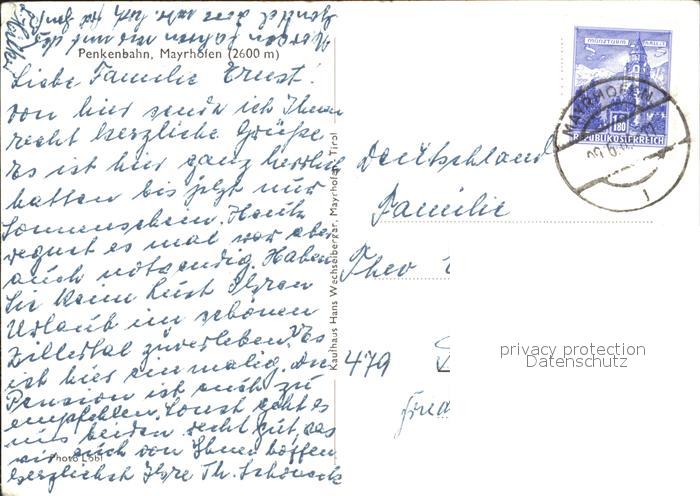 Penkenbahn, Mayrhofen (2600 m)
Liebe Familie Ernst!
von hier sende ich Ihnen
recht herzliche Grüße
Es ist hier ganz herrlich
hatten bis jetzt nur
Sonnenschein. Heute
regnet es mal war aber
auch notwendig. Haben
Sie keine Lust Ihren
Urlaub im schönen
Zillertal zuverleben. Es
ist hier einmalig. Die
Pension ist auch zu
empfehlen. Sonst geht es
uns beiden recht gut, was
wir auch von Ihnen hoffen
herzlichst Ihre Th.
Photo Löbl
Kaufhaus Hans Wechselberger, Mayrhofen, Tirol
MÜNZTURM HALL I. T.
S 1.80
REPUBLIK ÖSTERREICH
MAYRHOFEN
Deutschland
Familie
Theo
479
Fried
privacy protection
Datenschutz